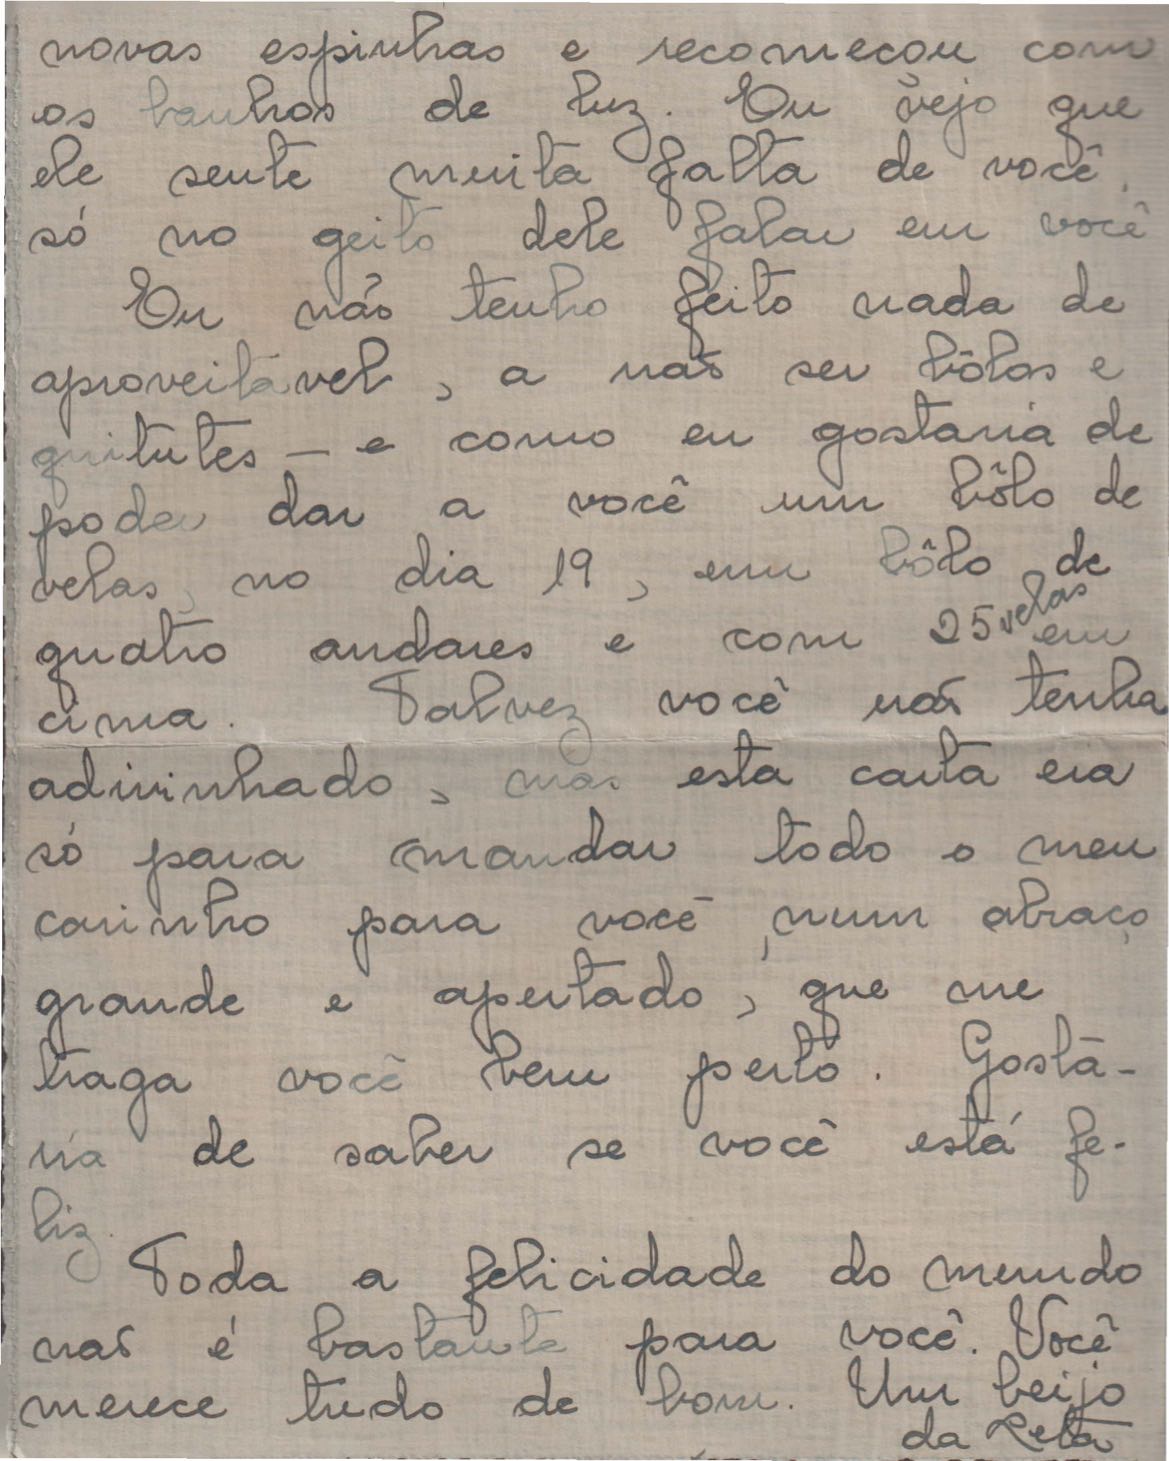 novas espinhas e recomeçou com
os banhos de luz. Eu vejo que
ele sente muita falta de você,
só no geito dele falar em você
Eu não tenho feito nada de
aproveitavel, a não ser bôlos e
quitutes — e como eu gostaria de
poder dar a você um bôlo de
velas, no dia 19, um bôlo de
quatro andares e com 25 velas em
cima. Talvez você não tenha
adivinhado, mas esta carta era
só para mandar todo o meu
carinho para você, num abraço
grande e apertado, que me
traga você bem perto. Gosta-
ria de saber se você está fe-
liz.
Toda a felicidade do mundo
não é bastante para você. Você
merece tudo de bom. Um beijo
da Zeta